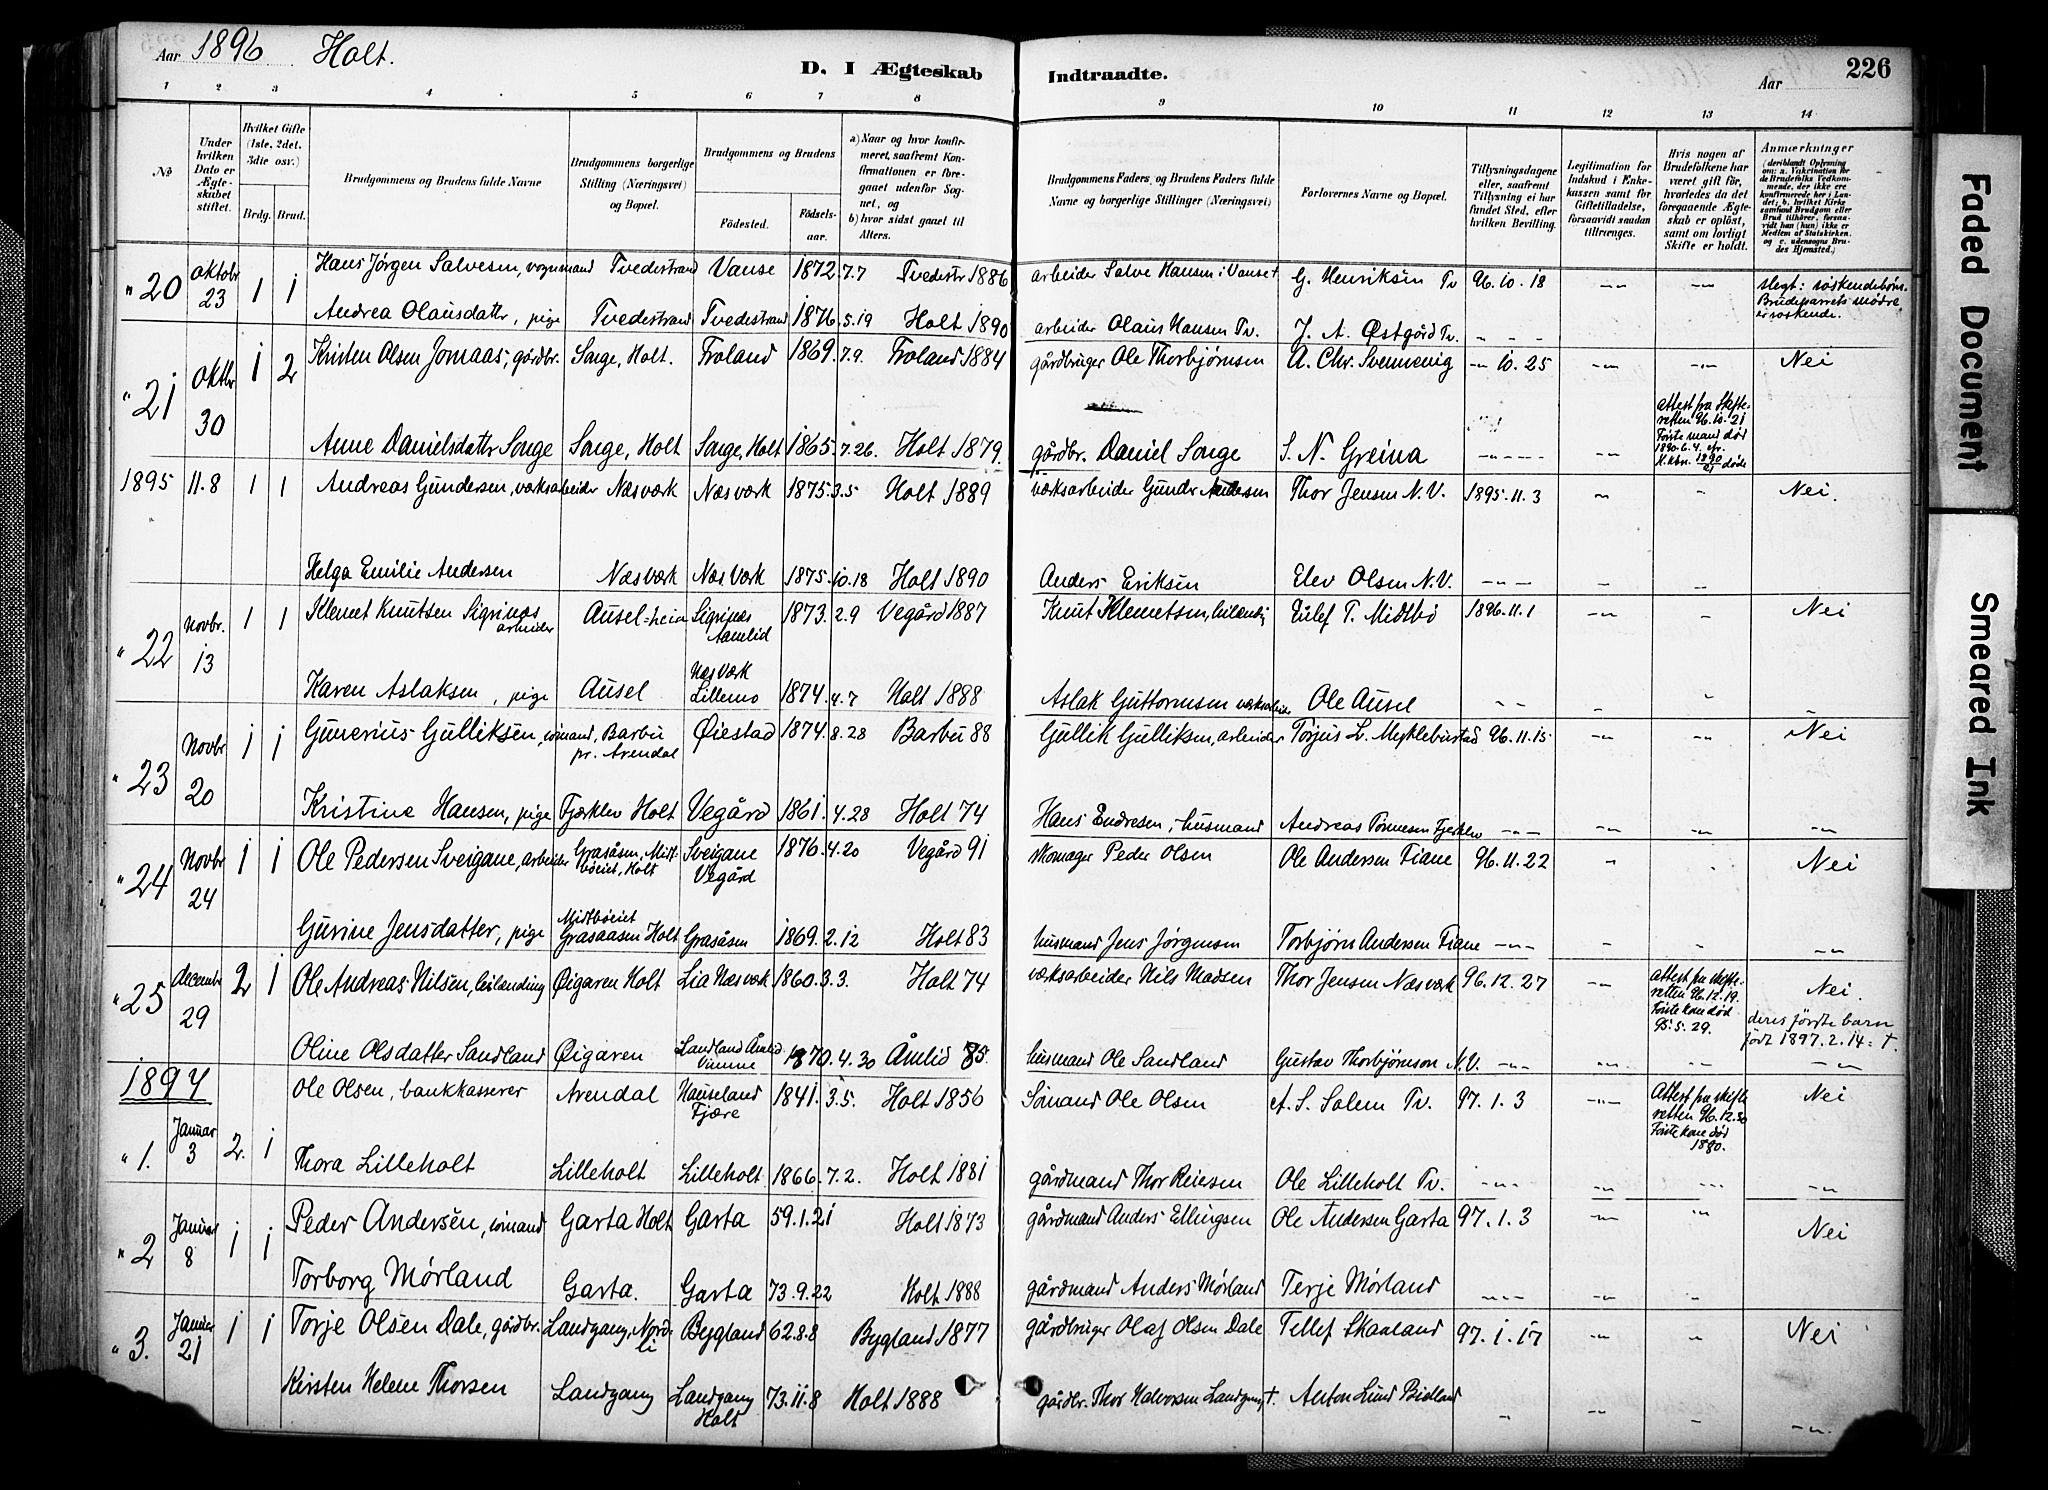 Aar 1896 Holt.
D. I Ægteskab Indtraadte.
Aar
226
1 2 3 4 5 6 7 8 9 10 11 12 13 14
No
Under hvilken Dato er Ægteskabet stiftet.
Hvilket Gifte (1ste, 2det, 3die osv.)
Brdg. Brud.
Brudgommens og Brudens fulde Navne
Brudgommens borgerlige Stilling (Næringsvei) og Bopæl.
Brudgommens og Brudens
Födested. Födselsaar.
a) Naar og hvor konfirmeret, saafremt Konfirmationen er foregaaet udenfor Sognet, og
b) hvor sidst gaaet til Alters.
Brudgommens Faders og Brudens Faders fulde Navne og borgerlige Stillinger (Næringsvei)
Forlovernes Navne og Bopæl.
Tillysningsdagene eller, saafremt Tillysning ei har fundet Sted, efter hvilken Bevilling.
Legitimation for Indskud i Enkekassen samt for Giftetilladelse, forsaavidt saadan tiltrænges.
Hvis nogen af Brudefolkene har været gift för, hvorledes da det foregaaende Ægteskab er oplöst, samt om lovligt Skifte er holdt.
Anmærkninger
(deriblandt Oplysning om: a. Vakcination for de Brudefolks Vedkommende, der ikke ere konfirmerede her i Landet; b. hvilket Kirkesamfund Brudgom eller Brud tilhörer, forsaavidt han (hun) ikke er Medlem af Statskirken, og c. udensogns Brudes Hjemsted.
" 20 oktobr 23 1 1 Hans Jörgen Salvesen, vognmand Tvedestrand Vanse 1872 7.7 Tvedestr 1886 arbeider Salve Hansen i Vanse † G. Henriksen Tv 96.10.18 -"- -"- slegt: söskendebörn. Brudeparrets mödre er söskende.
Andrea Olausdatter, pige Tvedestrand Tvedestrand 1876 5.19 Holt 1890 arbeider Olaus Hansen Tv. J. A. Østgård Tv. - - -
" 21 Oktbr 30 1 2 Kristen Olsen Jomaas, gårdbr. Songe, Holt. Froland 1869. 7.9. Froland 1884 gårdbruger Ole Thorbjørnsen A. Chr. Svennevig -"- 10.25 -"- -"- Nei
attest fra Skifteretten 96.10.21 Förste mand död 1890.6.4.
Anne Danielsdatter Songe Songe, Holt Songe, Holt 1865. 7.26. Holt 1879. gårdbr. Daniel Songe S. N. Greina -"-"- -"-
1895 11.8 1 1 Andreas Gundersen, værksarbeider Næsværk Næsværk 1875. 3.5 Holt 1889 værksarbeider Gunder Andersen Thor Jensen N.V. 1895.11.3 -"- " Nei.
Helga Emilie Andersen Næsværk Næsværk 1875. 10.18 Holt 1890 Anders Eriksen Elev Olsen N.V. -"-"- - -
" 22 novbr. 13 1 1 Klemet Knutsen Sigrinas arbeider Ausel=heia Sigrinas Aamlid 1873. 2.9 Vegård 1887 Knut Klemetsen, leilænding T. Midtbö 1896.11.1 -"- - Nei
Karen Aslaksen, pige Ausel Næsværk Lillemo 1874. 4.7 Holt 1888 Aslak Guttormsen værksarbeider Ole Ausel - - - - -
" 23 Novbr 20 1 1 Gunerius Gulliksen, sömand, Barbu pr. Arendal Øiestad 1874. 8.28 Barbu 88 Gullik Gulliksen, arbeider Törjus L. Myklebustad 96.11.15 -"- -"- Nei
Kristine Hansen, pige Fjærklev Holt Vegård 1861. 4.28 Holt 74 Hans Endresen, husmand Andreas Tönnesen Fjerklev -"-"- -"- -"- -"-
" 24 Novbr 24 1 1 Ole Pedersen Sveigane, arbeider Grasåsen, Midtböeiet, Holt Sveigane Vegård 1876. 4.20 Vegård 91 skomager Peder Olsen Ole Andersen Fiane 96.11.22 " " Nei
Gurine Jensdatter, pige Midtböeiet Grasaasen Holt Grasåsen 1869. 2.12 Holt 83 husmand Jens Jørgensen Torbjörn Andersen Fiane -"-"- - - -"-
" 25 decembr 29 2 1 Ole Andreas Nilsen, leilending Øigaren Holt Lia Næsværk 1860. 3.3. Holt 74 værksarbeider Nils Madsen Thor Jensen Næsværk 96.12.27 -"- attest fra skifteretten 96.12.19. Förste kone död 95.5.29. Nei. deres förste barn födt 1897.2.14: †.
Oline Olsdatter Sandland Øigaren Sandland Åmlid 1870. 4.30 Åmlid 85. husmand Ole Sandland Gustav Thorbjörnson N.V. -"-"- -"- -"- -"-
1897
" 1. Januar 3 2. 1 Ole Olsen, bankkasserer Arendal Hauseland Fjære 1841. 3.5. Holt 1856 Sömand Ole Olsen A. S. Solem Tv. 97.1.3 -"- Attest fra skifteretten 96.12.30 Förste kone död 1890. Nei
Thora Lilleholt Lilleholt Lilleholt 1866. 7.2. Holt 1881 gårdmand Thor Reiersen Ole Lilleholt Tv. -"-"- -"- -"- -"-
" 2 Januar 8 1 1 Peder Andersen, sömand Garta Holt Garta 59.1.21 Holt 1873 gårdmand Anders Ellingsen Ole Andersen Garta 97.1.3 -"- -"- Nei
Torborg Mørland Garta. Garta 73.9.22 Holt 1888 gårdmand Anders Mørland Terje Mørland -"-"- -"- "
" 3. Januar 21 1 1 Torje Olsen Dale, gårdbr. Landgang, Nordli Bygland 62.8.8 Bygland 1877 gårdbruger Olaf Olsen Dale Tellef Skaaland 97.1.17 -"- " Nei
Kirsten Helene Thorsen Landgang Landgang Holt 73.11.8 Holt 1888 gårdbr. Thor Halvorsen Landgang † Anton Lund Bidland - -"- - -"-
Faded Document
Smeared Ink